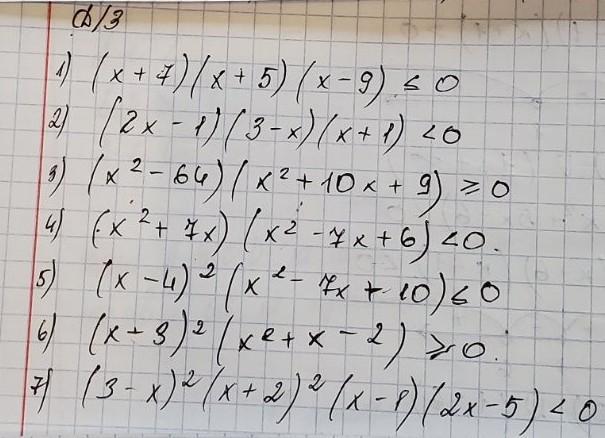 д/з
1) (x + 7)(x + 5)(x - 9) ≤ 0
2) (2x - 1)(3 - x)(x + 1) < 0
3) (x² - 64)(x² + 10x + 9) ≥ 0
4) (x² + 7x)(x² - 7x + 6) < 0.
5) (x - 4)² (x² - 7x + 10) ≤ 0
6) (x + 3)² (x² + x - 2) ≥ 0.
7) (3 - x)² (x + 2)² (x - 1)(2x - 5) < 0